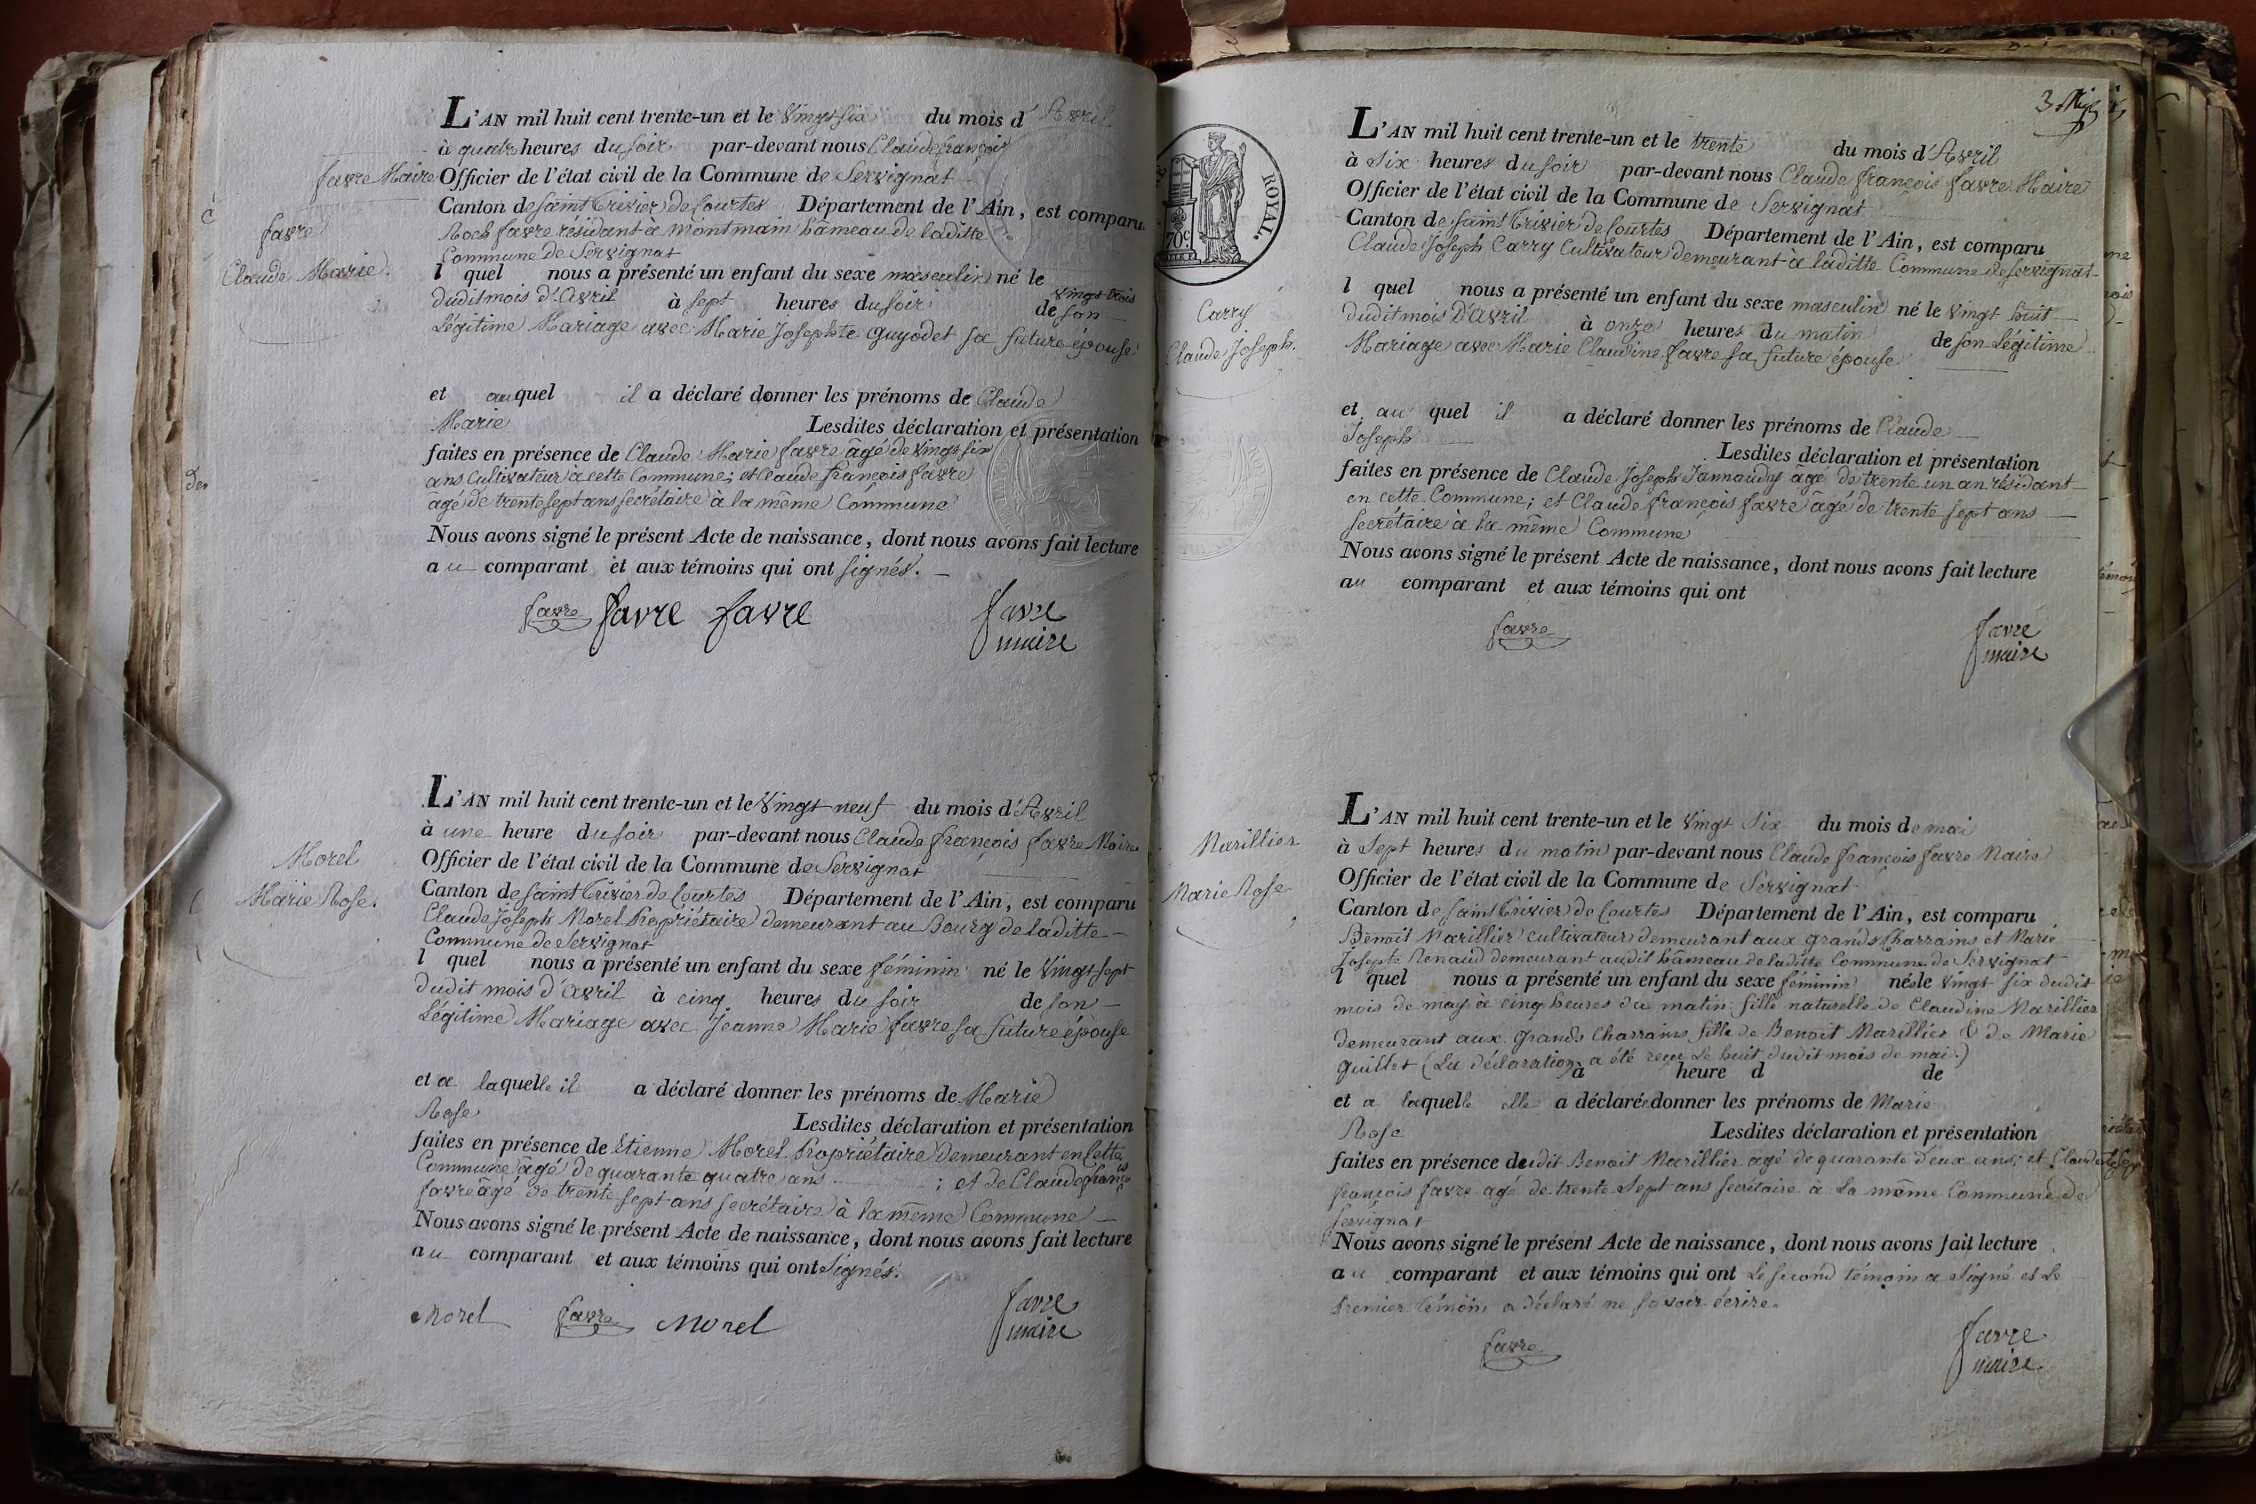 L'AN mil huit cent trente-un et le vingt six du mois d'Avril
à quatre heures du soir par-devant nous Claude françois
favre Maire Officier de l'état civil de la Commune de Servignat
Canton de saint Trivier de Courtes Département de l'Ain, est comparu
Roch favre résidant à Montmain hameau de laditte
Commune de Servignat
l quel nous a présenté un enfant du sexe masculin né le vingt trois
dudit mois d'avril à sept heures du soir de son
Légitime Mariage avec Marie Josephte Guyodet sa future épouse
et auquel il a déclaré donner les prénoms de Claude
Marie Lesdites déclaration et présentation
faites en présence de Claude Marie favre âgé de vingt six
ans Cultivateur à cette Commune; et Claude françois favre
âgé de trente sept ans secrétaire à la même Commune
Nous avons signé le présent Acte de naissance, dont nous avons fait lecture
au comparant et aux témoins qui ont signés.
favre favre favre favre
maire
favre
Claude Marie.
L'AN mil huit cent trente-un et le Vingt neuf du mois d'Avril
à une heure du soir par-devant nous Claude françois favre Maire
Officier de l'état civil de la Commune de Servignat
Canton de saint Trivier de Courtes Département de l'Ain, est comparu
Claude Joseph Morel Propriétaire demeurant au Bourg de laditte
Commune de Servignat
l quel nous a présenté un enfant du sexe féminin né le Vingt sept
dudit mois d'avril à cinq heures du soir de son
Légitime Mariage avec Jeanne Marie favre sa future épouse
et a laquelle il a déclaré donner les prénoms de Marie
Rose Lesdites déclaration et présentation
faites en présence de Etienne Morel Propriétaire demeurant en Cette
Commune âgé de quarante quatre ans ; et de Claude françois
favre âgé de trente sept ans secrétaire à la même Commune
Nous avons signé le présent Acte de naissance, dont nous avons fait lecture
au comparant et aux témoins qui ont signés.
Morel favre Morel favre
maire
Morel
Marie Rose.
ROYAL.
70c
L'AN mil huit cent trente-un et le trente du mois d'Avril
à six heures du soir par-devant nous Claude françois favre Maire
Officier de l'état civil de la Commune de Servignat
Canton de saint Trivier de Courtes Département de l'Ain, est comparu
Claude Joseph Carry Cultivateur demeurant à laditte Commune de servignat
l quel nous a présenté un enfant du sexe masculin né le vingt huit
dudit mois D'avril à onze heures du matin de son Légitime
Mariage avec Marie Claudine favre sa future épouse
et au quel il a déclaré donner les prénoms de Claude
Joseph Lesdites déclaration et présentation
faites en présence de Claude Joseph Jannaudy âgé de trente un an résidant
en cette Commune; et Claude françois favre âgé de trente sept ans
secrétaire à la même Commune
Nous avons signé le présent Acte de naissance, dont nous avons fait lecture
au comparant et aux témoins qui ont
favre favre
maire
Carry
Claude Joseph.
L'AN mil huit cent trente-un et le vingt six du mois de mai
à sept heures du matin par-devant nous Claude françois favre Maire
Officier de l'état civil de la Commune de Servignat
Canton de saint Trivier de Courtes Département de l'Ain, est comparu
Benoit Marillier cultivateur demeurant aux grands Charrains et Marie
Josepte Renaud demeurant audit hameau de laditte Commune de Servignat
l quel nous a présenté un enfant du sexe féminin née le vingt six dudit
mois de may à cinq heures du matin fille naturelle de Claudine Marillier
demeurant aux grands Charrains fille de Benoit Marillier & de Marie
Guillet (La déclaration a été reçu le huit dudit mois de mai.)
à heure d de
et a laquelle elle a déclaré donner les prénoms de Marie
Rose Lesdites déclaration et présentation
faites en présence dudit Benoit Marillier agé de quarante deux ans; et Claude
françois favre agé de trente sept ans secrétaire à la même Commune de
servignat
Nous avons signé le présent Acte de naissance, dont nous avons fait lecture
au comparant et aux témoins qui ont le second témoin a signé et le
premier témoin a déclaré ne savoir écrire.
favre favre
maire.
Marillier
Marie Rose